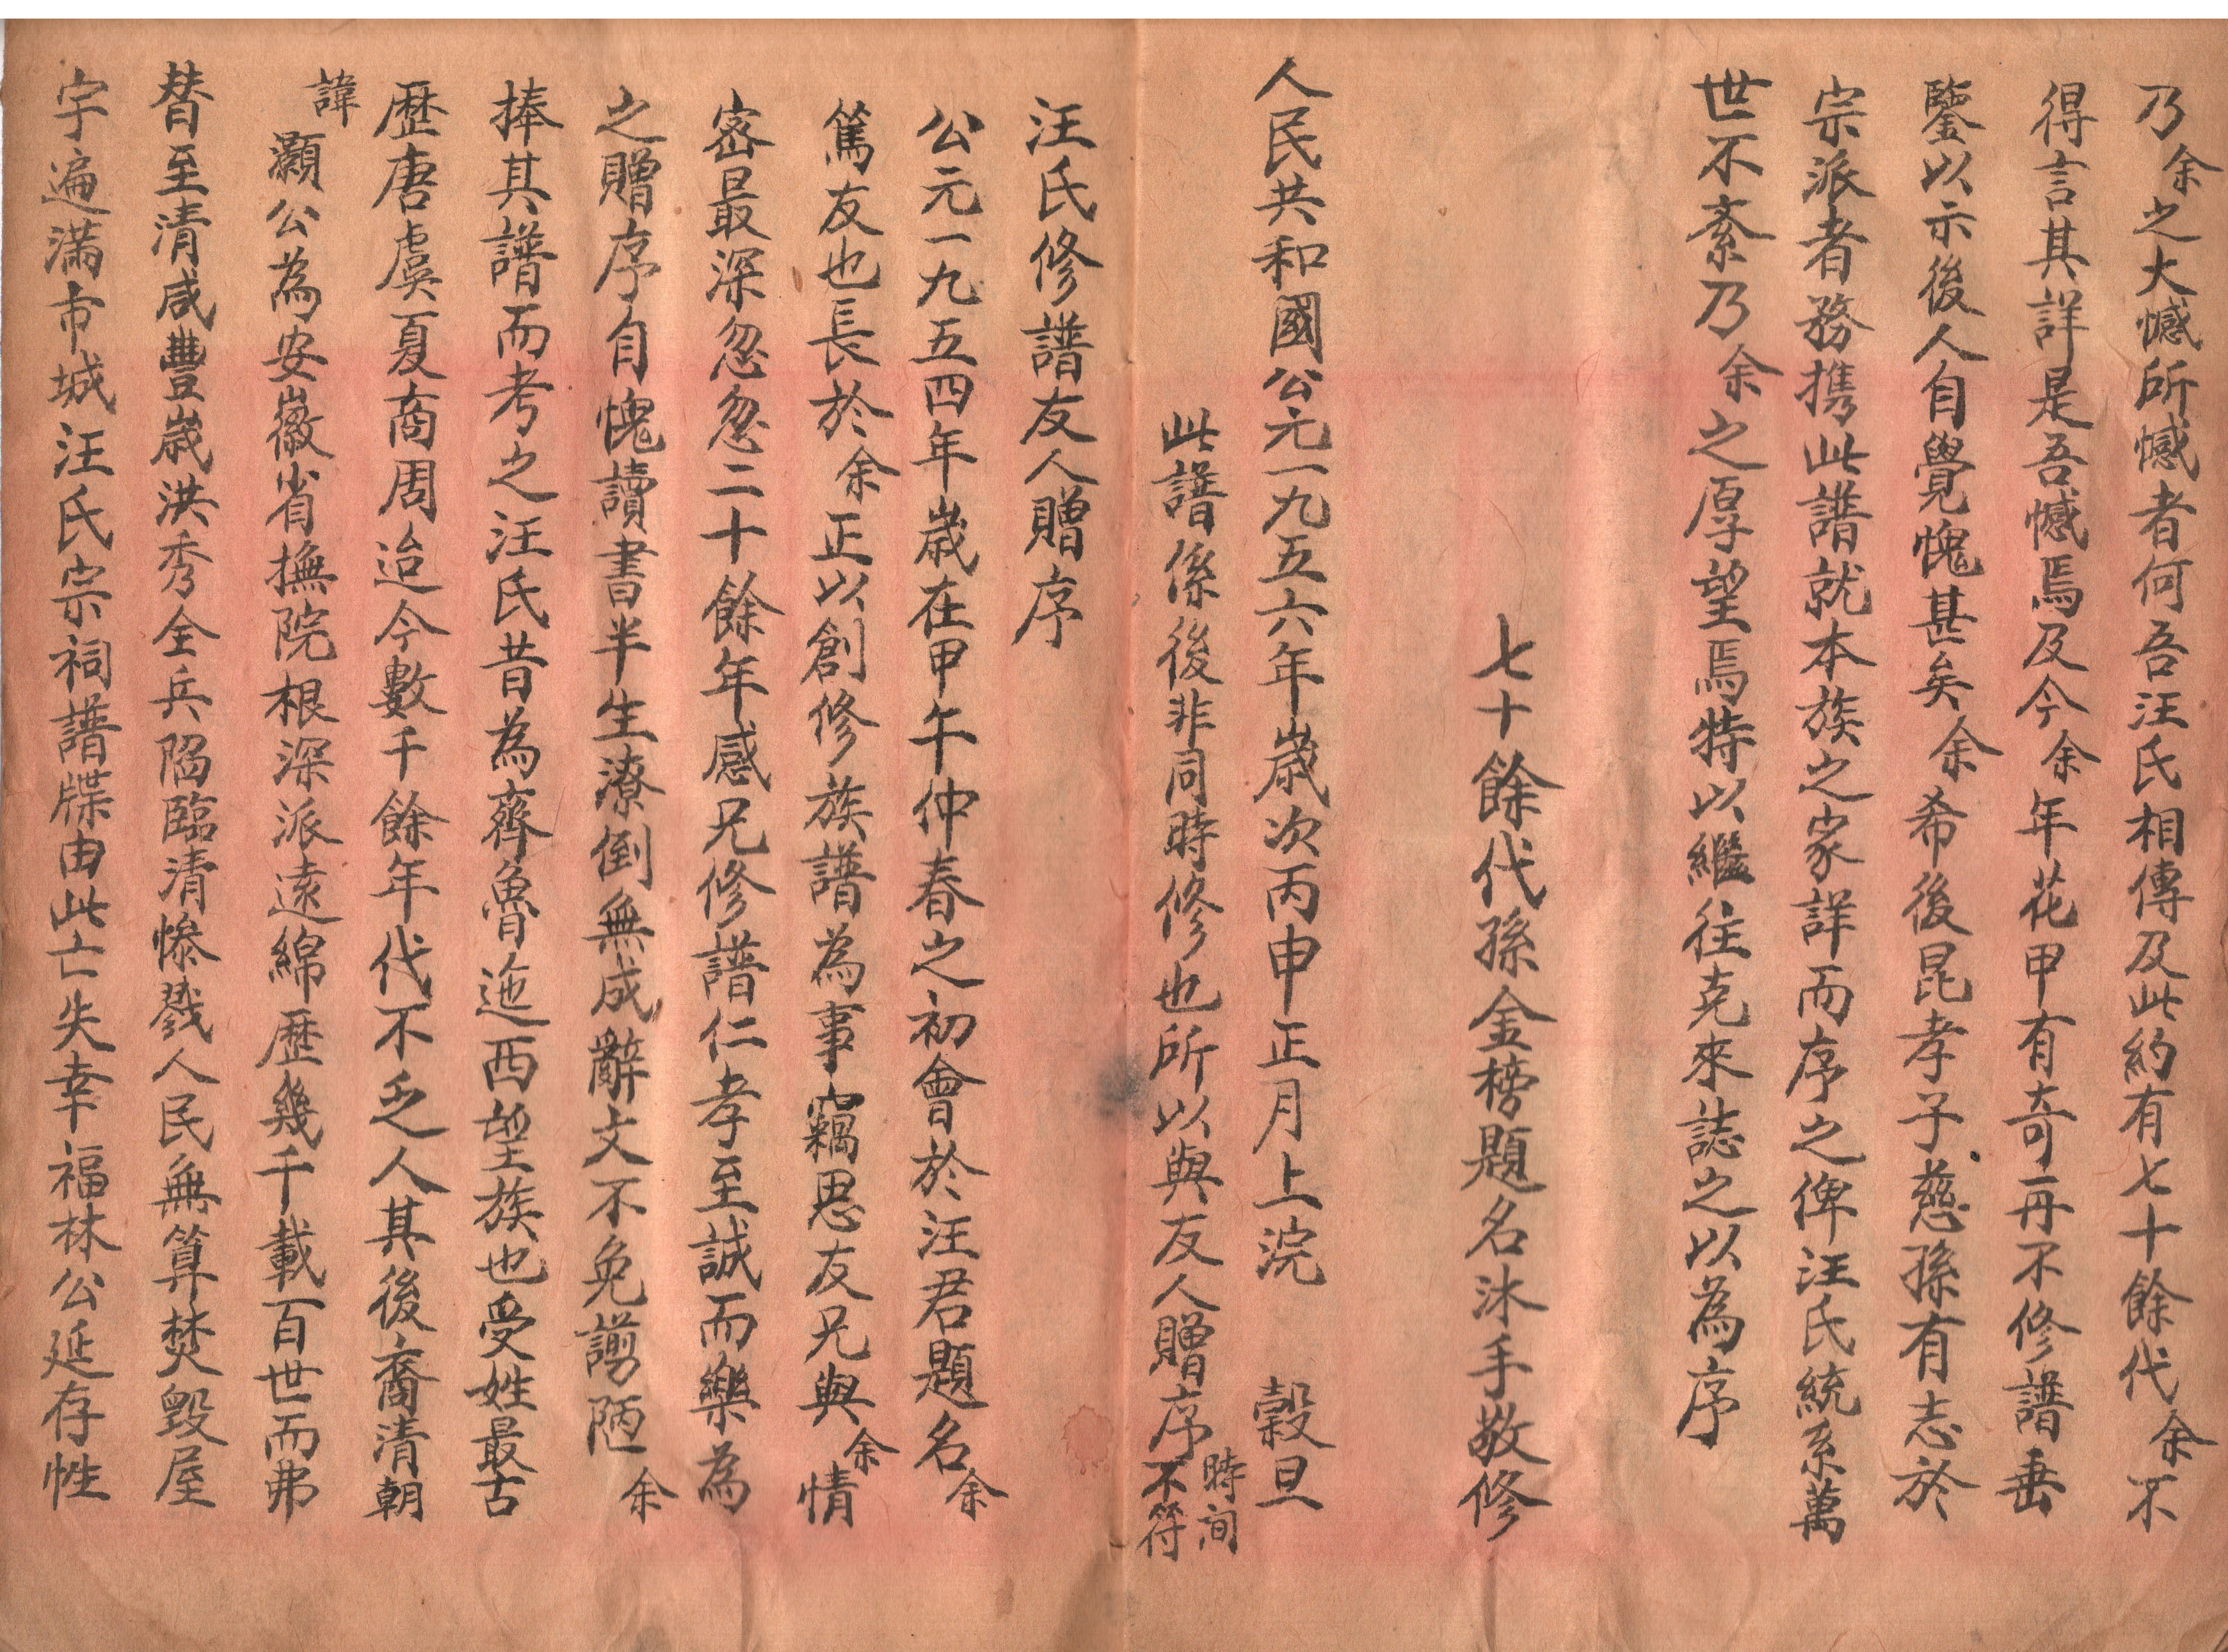 乃余之大憾所憾者何吾汪氏相傳及此約有七十餘代余不
得言其詳是吾憾焉及今余年花甲有奇再不修譜垂
鑒以示後人自覺愧甚矣余希後昆孝子慈孫有志於
宗派者務携此譜就本族之家詳而序之俾汪氏統系萬
世不紊乃余之厚望焉特以繼往克來誌之以為序
七十餘代孫金榜題名沐手敬修
人民共和國公元一九五六年歲次丙申正月上浣 穀旦
此譜係後非同時修也所以與友人贈序時间不符
汪氏修譜友人贈序
公元一九五四年歲在甲午仲春之初會於汪君題名余
篤友也長於余正以創修族譜為事竊思友兄與余情
密最深忽忽二十餘年感兄修譜仁孝至誠而樂為
之贈序自愧讀書半生潦倒無成辭文不免謭陋余
捧其譜而考之汪氏昔為齊魯迤西望族也受姓最古
歷唐虞夏商周迨今數千餘年代不乏人其後裔清朝
諱灝公為安徽省撫院根深派遠綿歷幾千載百世而弗
替至清咸豐歲洪秀全兵陷臨清慘戮人民無算焚毀屋
宇遍滿市城汪氏宗祠譜牒由此亡失幸福林公延存性